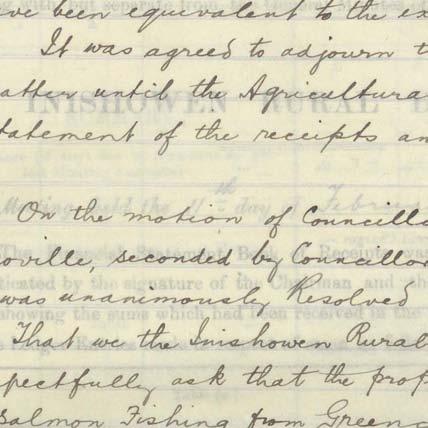 ve been equivalent to the ex
It was agreed to adjourn t
atter until the Agricultura
tatement of the receipts an
On the motion of Councillo
oville, seconded by Councillor
was unanimously Resolved
That we the Inishowen Rural
pectfully ask that the prop
Salmon Fishing from Greenc